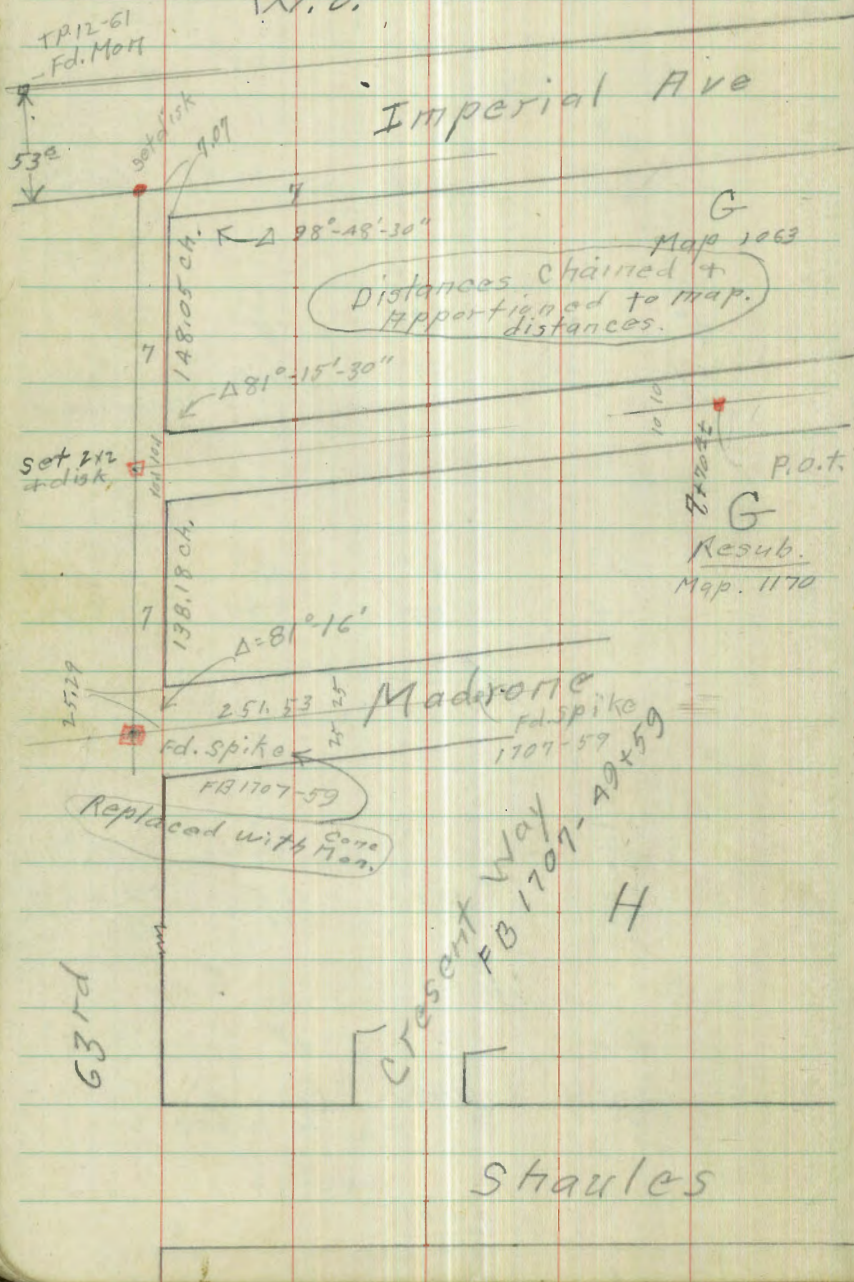 W.O.
T.P. 12-61
Fd. Mon
Imperial Ave
53
set disk
7.07
7
Δ 98°-48'-30"
G
Map 1063
Distances chained +
Apportioned to map.
distances.
148.05 ch.
7
Δ 81°-15'-30"
10 10
set 2x2
+ disk
P.O.T.
G
Resub.
Map. 1170
138.18 ch.
7
Δ=81°-16'
25.29
251.53
25 25
Madrone
Fd. spike
1707-59
Fd. spike
FB 1707-59
Replaced with Conc
Mon.
Cresent Way
FB 1707-49+59
H
63rd
Shaules